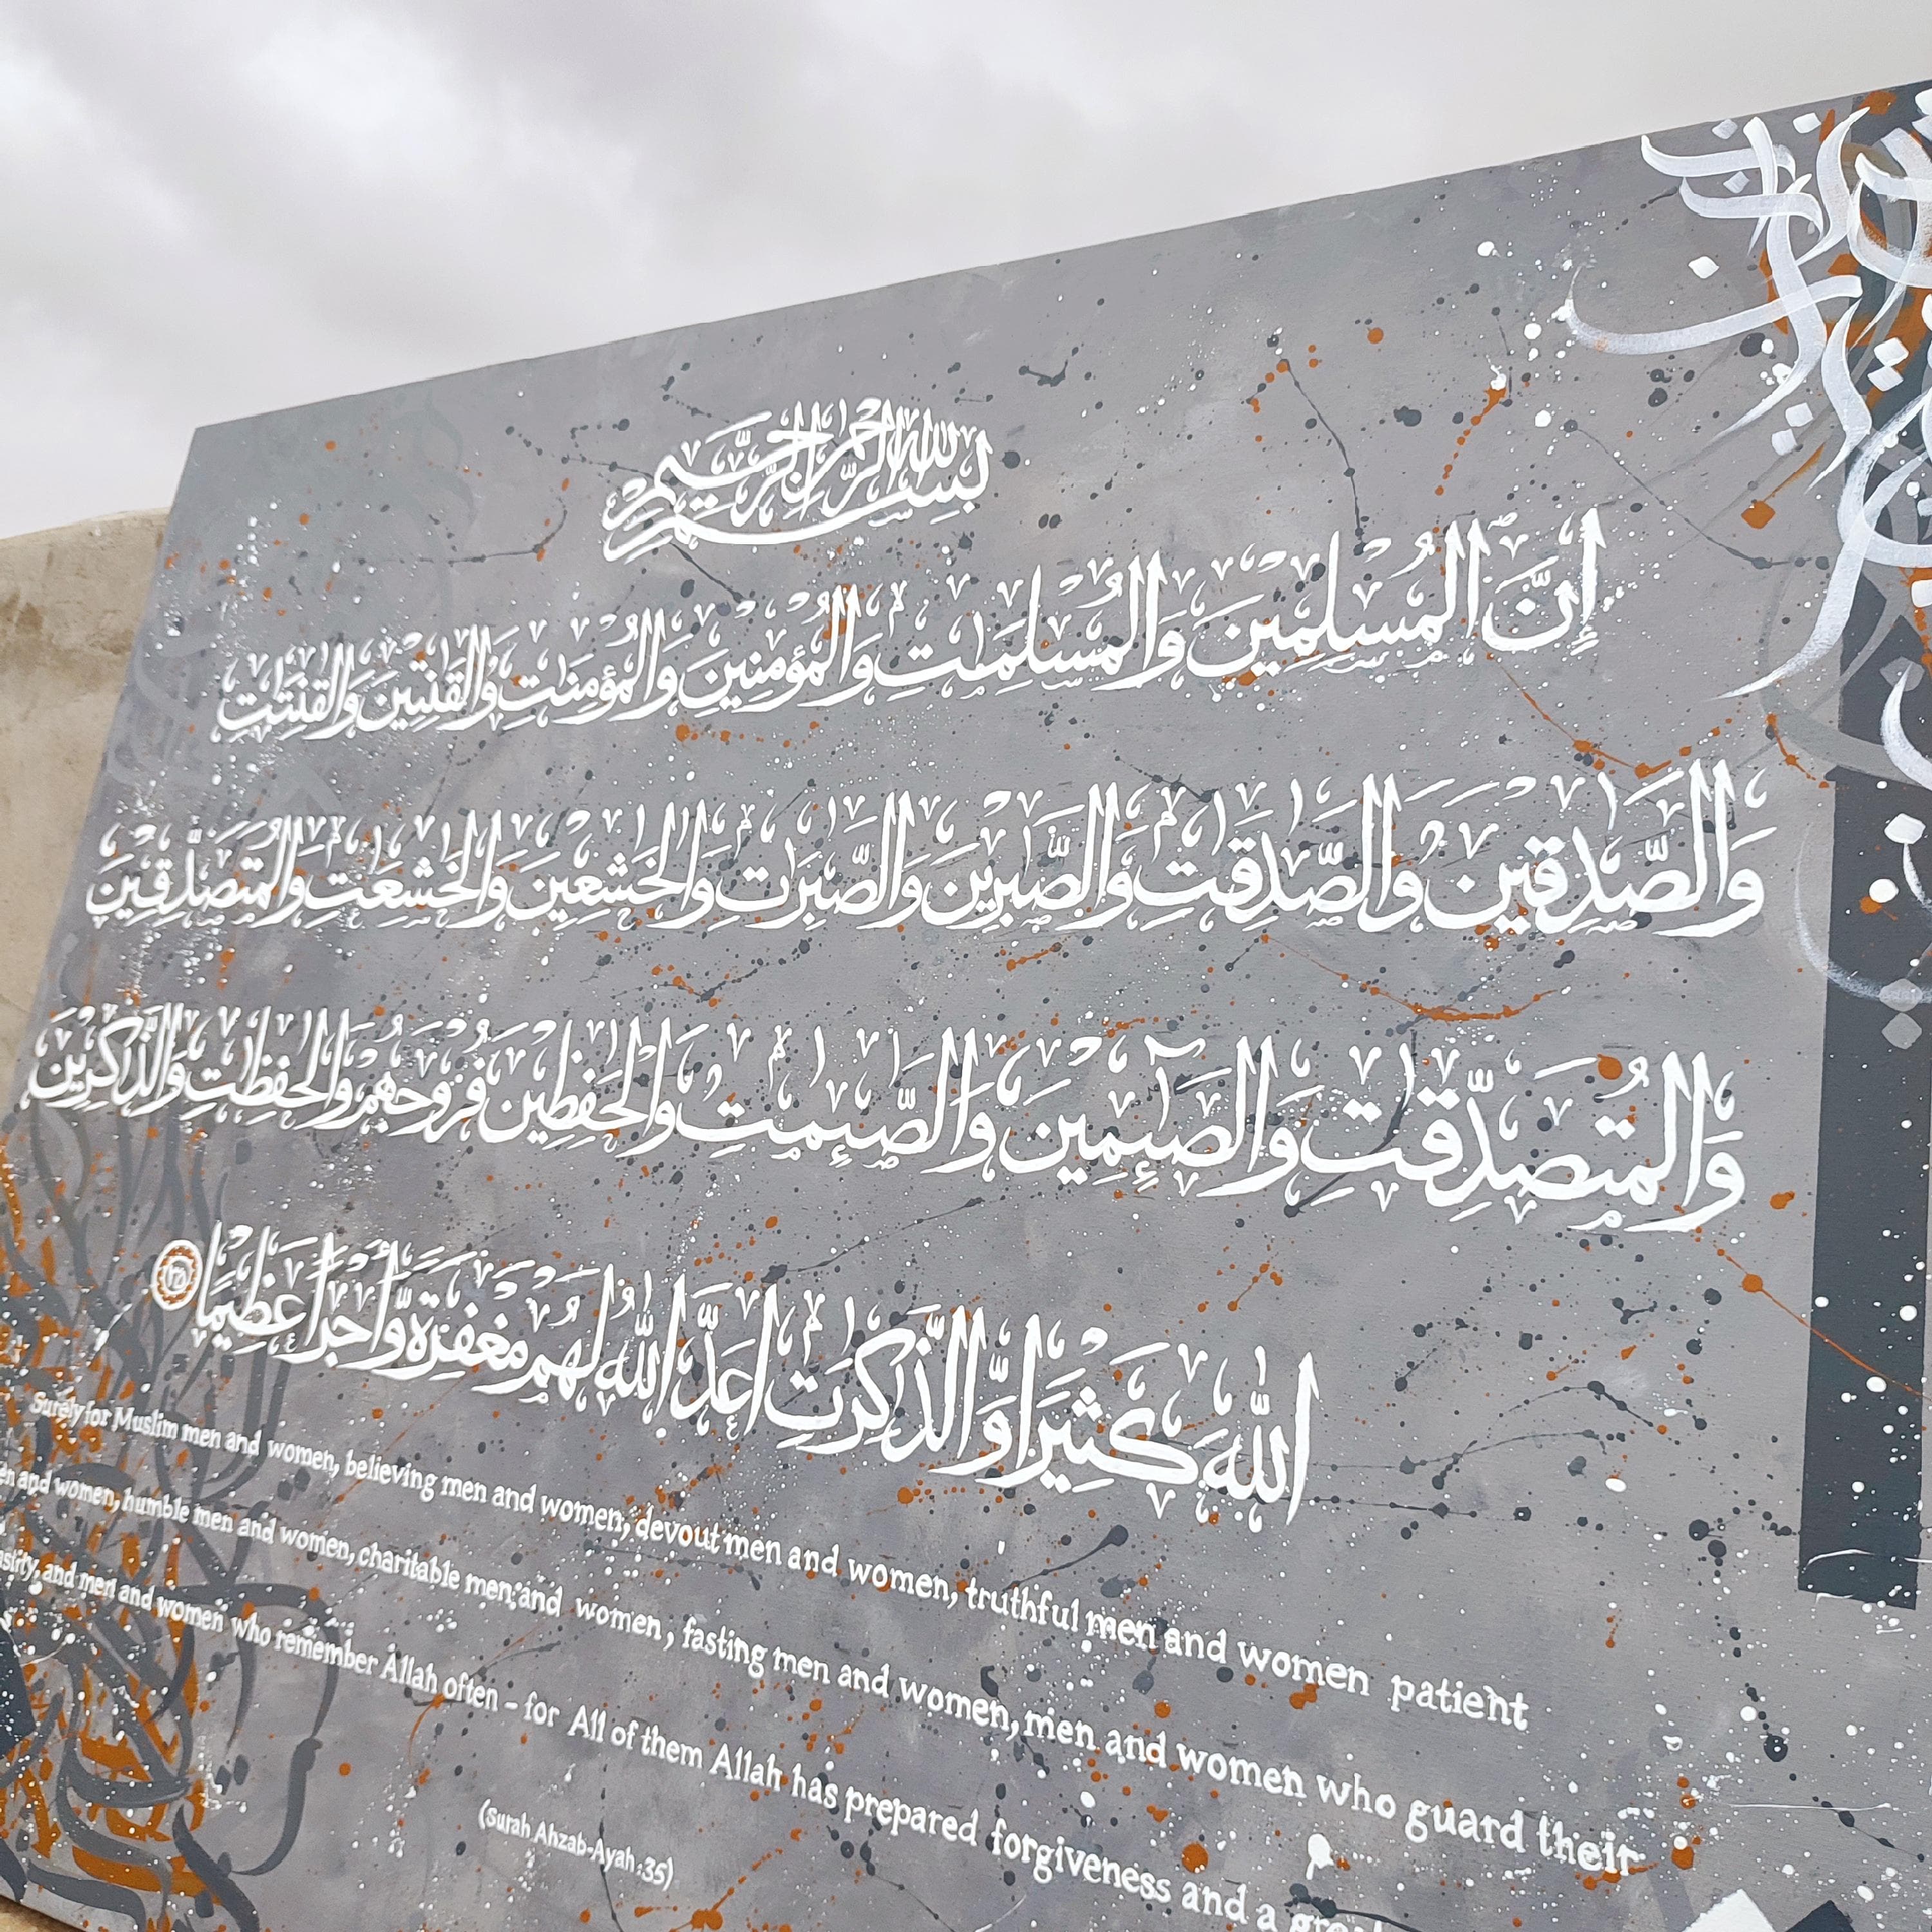 بِسْمِ اللهِ الرَّحْمٰنِ الرَّحِيْمِ
إِنَّ الْمُسْلِمِيْنَ وَالْمُسْلِمٰتِ وَالْمُؤْمِنِيْنَ وَالْمُؤْمِنٰتِ وَالْقٰنِتِيْنَ وَالْقٰنِتٰتِ
وَالصّٰدِقِيْنَ وَالصّٰدِقٰتِ وَالصّٰبِرِيْنَ وَالصّٰبِرٰتِ وَالْخٰشِعِيْنَ وَالْخٰشِعٰتِ وَالْمُتَصَدِّقِيْنَ
وَالْمُتَصَدِّقٰتِ وَالصَّآئِمِيْنَ وَالصّٰٓئِمٰتِ وَالْحٰفِظِيْنَ فُرُوْجَهُمْ وَالْحٰفِظٰتِ وَالذّٰكِرِيْنَ
اللهَ كَثِيْرًا وَّالذّٰكِرٰتِ اَعَدَّ اللهُ لَهُمْ مَّغْفِرَةً وَّاَجْرًا عَظِيْمًا ٣٥
Surely for Muslim men and women, believing men and women, devout men and women, truthful men and women patient
en and women, humble men and women, charitable men and women, fasting men and women, men and women who guard their
astity, and men and women who remember Allah often - for All of them Allah has prepared forgiveness and a
(Surah Ahzab-Ayah :35)